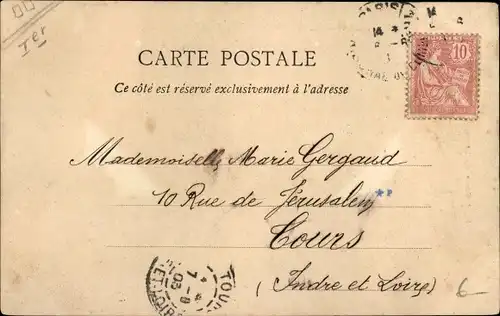 Ier
PARIS
CARTE POSTALE
10
Ce côté est réservé exclusivement à l'adresse
Mademoiselle Marie Gergaud
10 Rue de Jérusalem
Tours
(Indre et Loire)
TOURS
7 - 8
03
ET-LOIRE
6